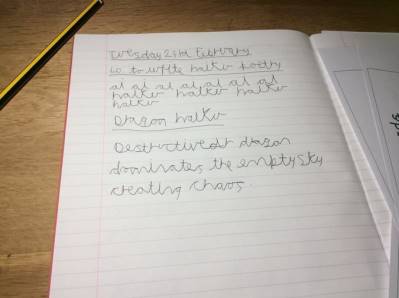 Tuesday 21st February
LO to write haiku poetry
al al al al al al al al
haiku haiku haiku
haiku
Dragon haiku
Destructive dragon
dominates the empty sky
creating chaos.